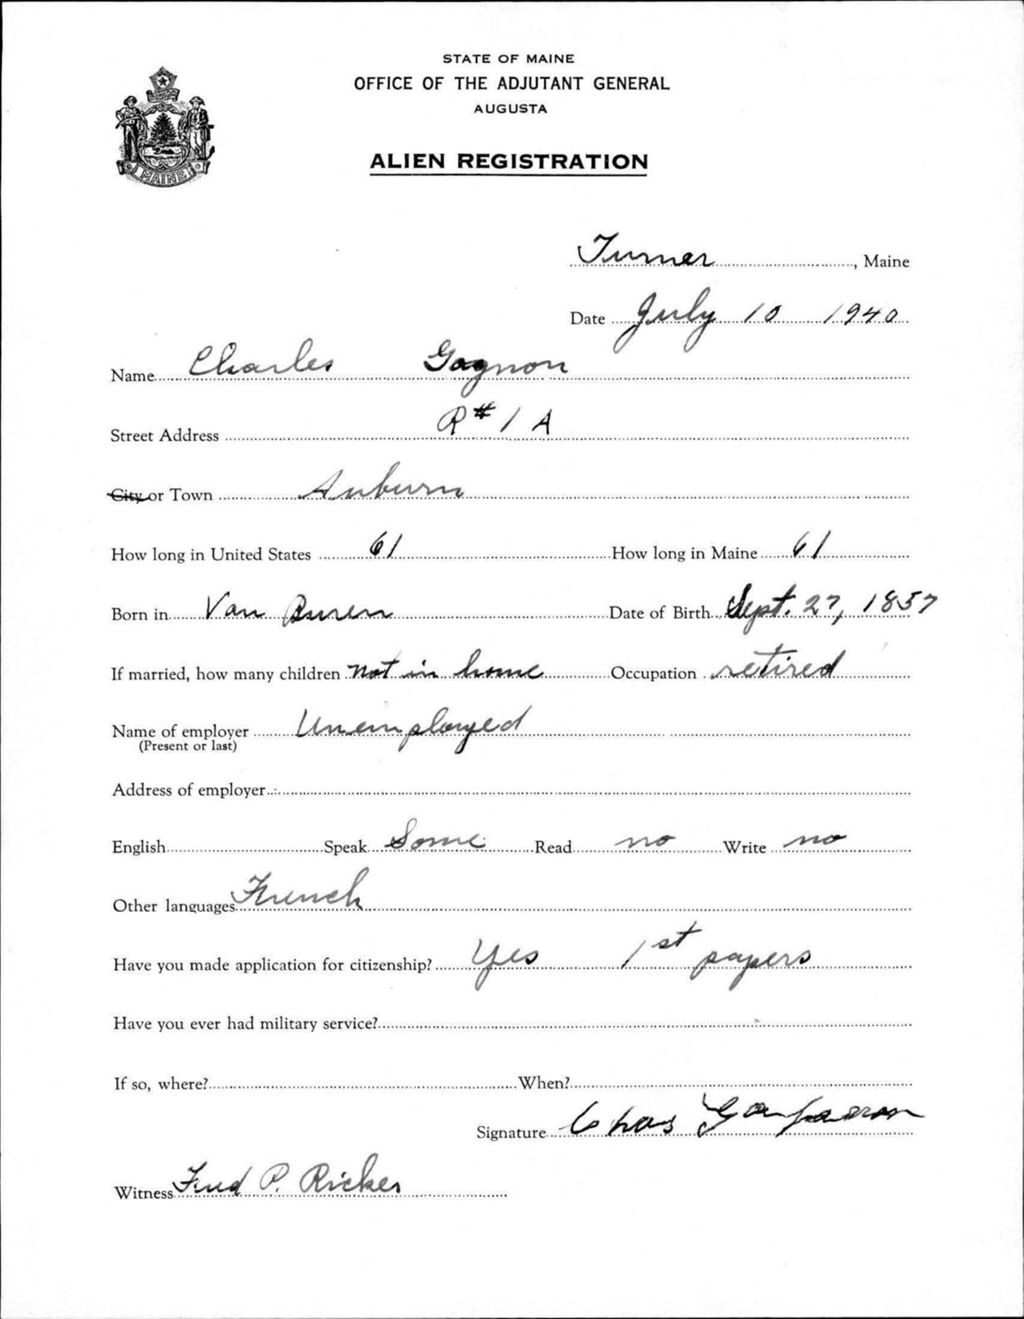 STATE OF MAINE
OFFICE OF THE ADJUTANT GENERAL
AUGUSTA
ALIEN REGISTRATION
MAINE
Turner, Maine
Date July 10 1940
Name Charles Gagnon
Street Address R#1A
City or Town Auburn
How long in United States 61 How long in Maine 61
Born in Van Buren Date of Birth Sept. 27, 1857
If married, how many children not in home Occupation retired
Name of employer Unemployed
(Present or last)
Address of employer
English Speak Some Read no Write no
Other languages French
Have you made application for citizenship? Yes 1st papers
Have you ever had military service?
If so, where? When?
Signature Chas
Witness Fred P. Ricker